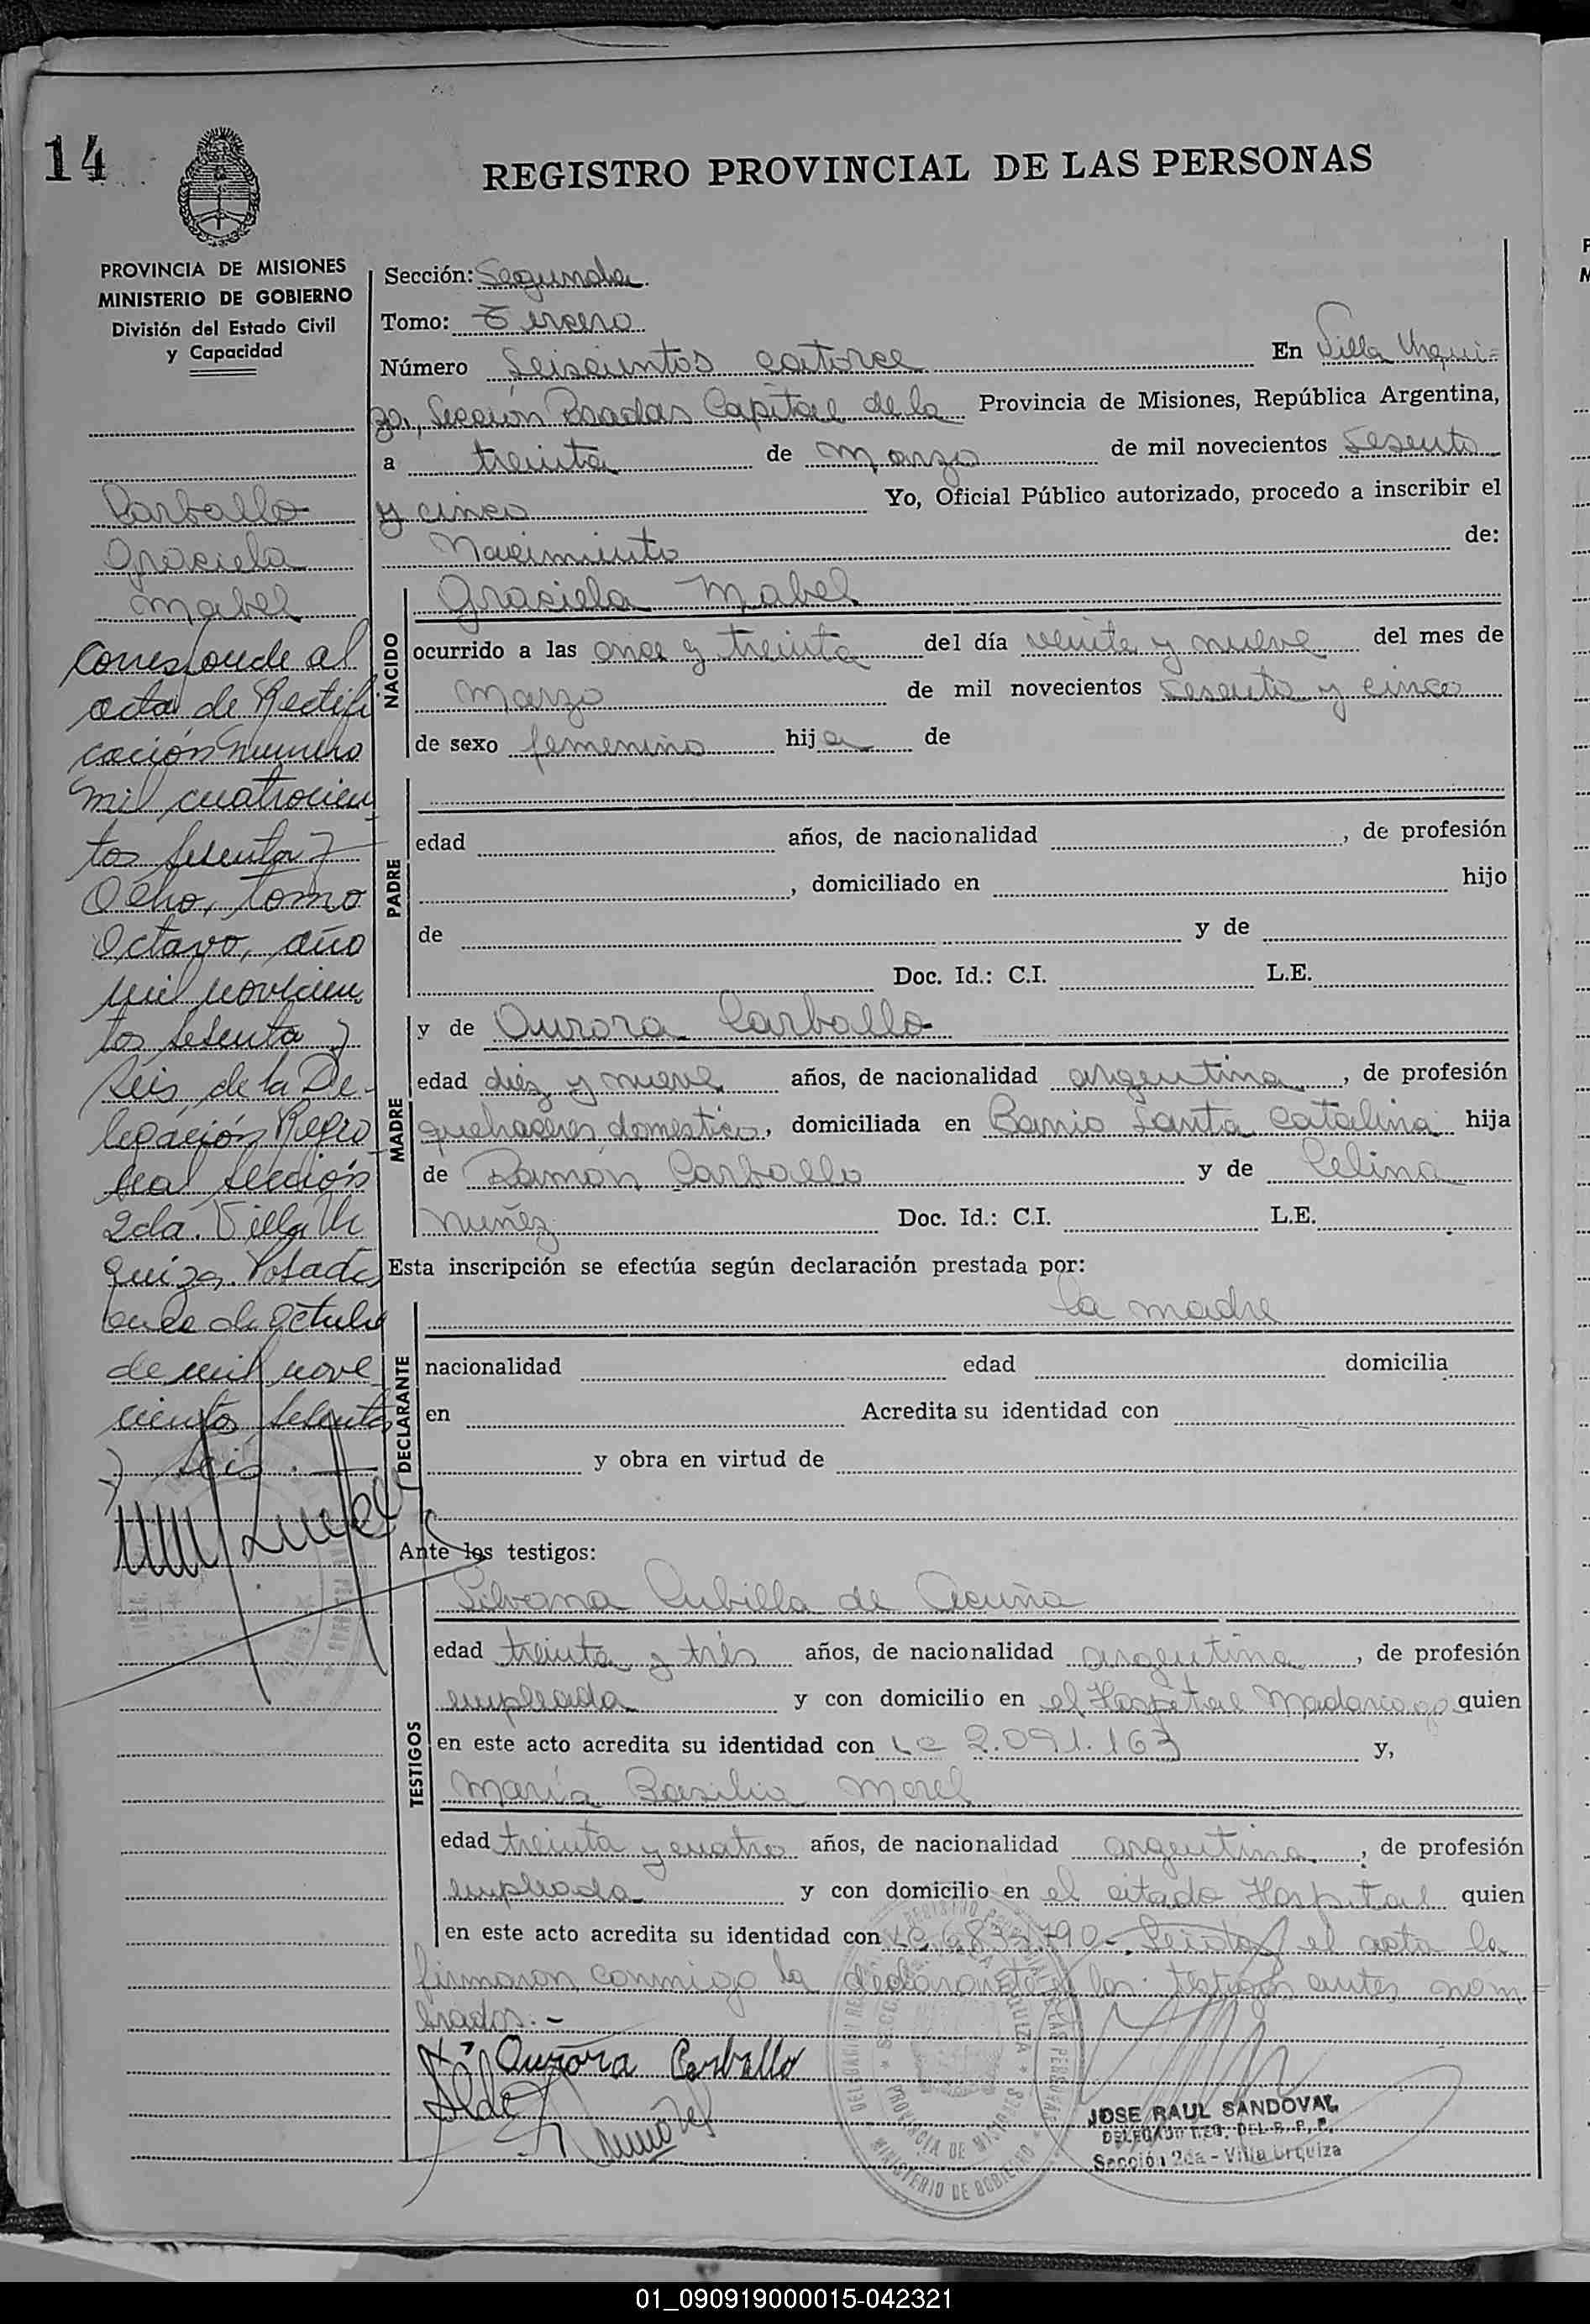 14
REGISTRO PROVINCIAL DE LAS PERSONAS
PROVINCIA DE MISIONES
MINISTERIO DE GOBIERNO
División del Estado Civil
y Capacidad
Carballo
Graciela
Mabel
Corresponde al
acta de Rectifi
cación numero
mil cuatrocien
tos sesenta y
Ocho, tomo
Octavo, año
mil novecien
tos sesenta y
seis, de la De-
legación Regio
nal sección
2da. Villa Ur
quiza, Posadas
once de octubre
de mil nove
cientos sesenta
y seis.
Sección: Segunda
Tomo: Tercero
Número Seiscientos catorce En Villa Urqui=
za, Sección Posadas Capital de la Provincia de Misiones, República Argentina,
a treinta de Marzo de mil novecientos sesenta
y cinco Yo, Oficial Público autorizado, procedo a inscribir el
Nacimiento de:
NACIDO
Graciela Mabel
ocurrido a las once y treinta del día veinte y nueve del mes de
Marzo de mil novecientos sesenta y cinco
de sexo femenino hija de
PADRE
edad años, de nacionalidad , de profesión
, domiciliado en hijo
de y de
Doc. Id.: C.I. L.E.
MADRE
y de Aurora Carballo
edad diez y nueve años, de nacionalidad argentina, de profesión
quehaceres domesticos, domiciliada en Barrio Santa Catalina hija
de Ramón Carballo y de Celina
Nuñez Doc. Id.: C.I. L.E.
Esta inscripción se efectúa según declaración prestada por:
la madre
DECLARANTE
nacionalidad edad domicilia
en Acredita su identidad con
y obra en virtud de
Ante los testigos:
TESTIGOS
Silvana Cubilla de Acuña
edad treinta y trés años, de nacionalidad argentina, de profesión
empleada y con domicilio en el Hospital Madariaga quien
en este acto acredita su identidad con LC 2.091.163 y,
María Basilia Morel
edad treinta y cuatro años, de nacionalidad argentina, de profesión
empleada y con domicilio en el citado Hospital quien
en este acto acredita su identidad con LC 790-. Leida el acta la
firmaron conmigo la declarante y los testigos antes nom=
brados.-
Aurora Carballo
MINISTERIO DE GOBIERNO
PROVINCIA DE MISIONES
JOSE RAUL SANDOVAL
DELEGADO REG. DEL R. P. P.
Sección 2da - Villa Urquiza
01_090919000015-042321